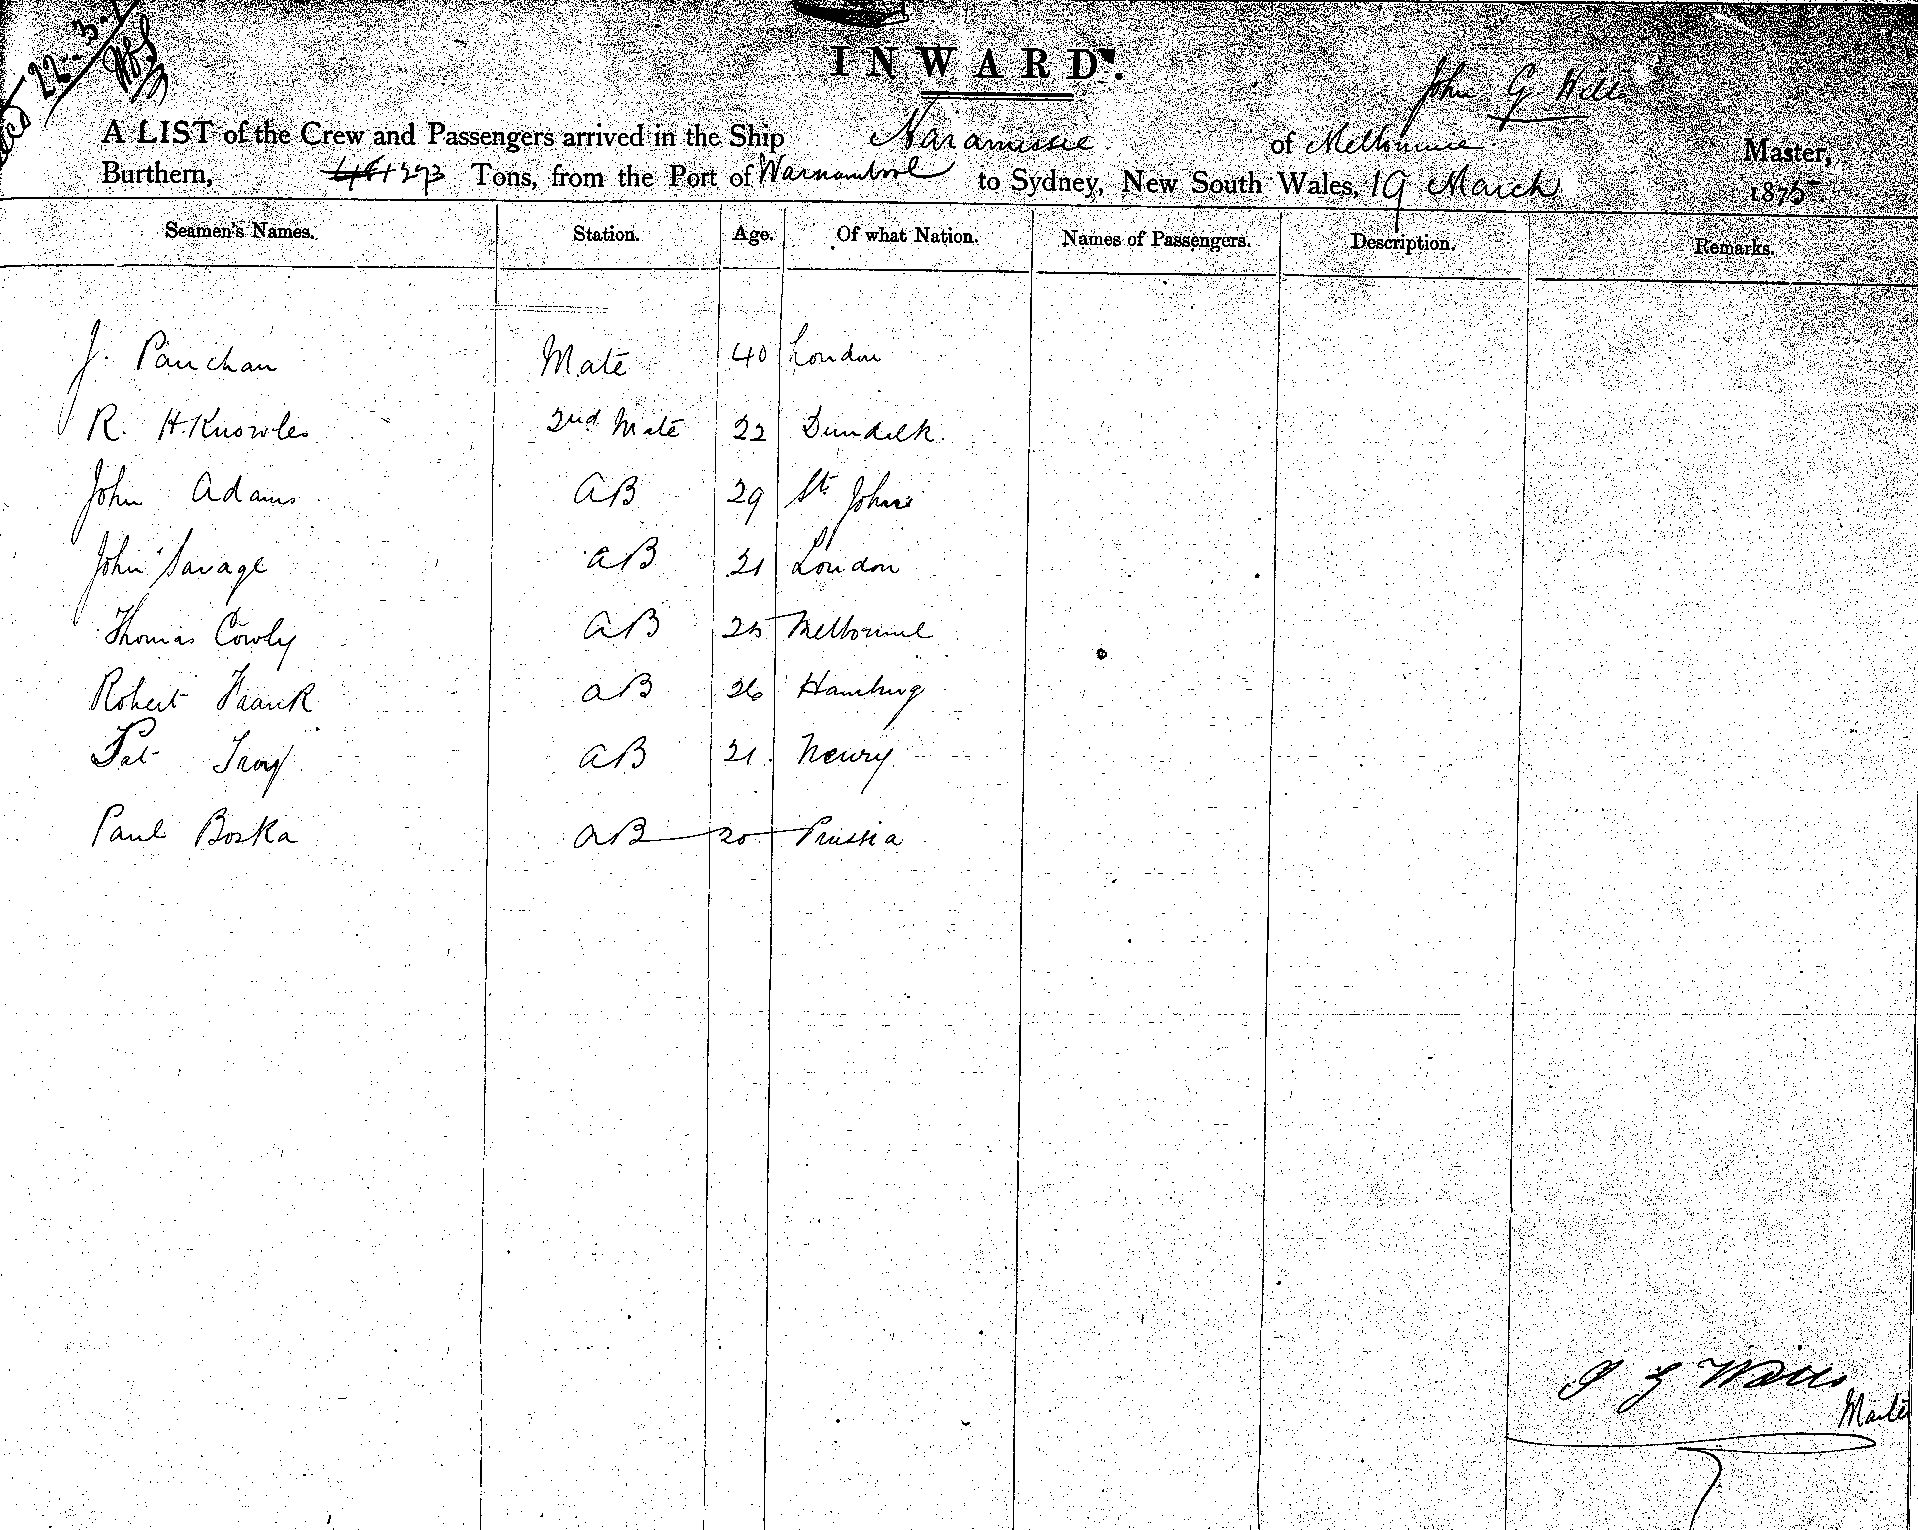 22-3-
INWARD.
John G Wells
A LIST of the Crew and Passengers arrived in the Ship Naramissie of Melbourne Master,
Burthern, 273 Tons, from the Port of Warnambool to Sydney, New South Wales, 19 March 1875
Seamen's Names. Station. Age. Of what Nation. Names of Passengers. Description. Remarks.
J. Panchan Mate 40 London
R. H. Knowles 2nd Mate 22 Dundalk
John Adams AB 29 St Johns
John Savage AB 21 London
Thomas Cowly AB 25 Melbourne
Robert Frank AB 26 Hamburg
Pat Troy AB 21 Newry
Paul Boska AB 20 Prussia
J G Wells
Master